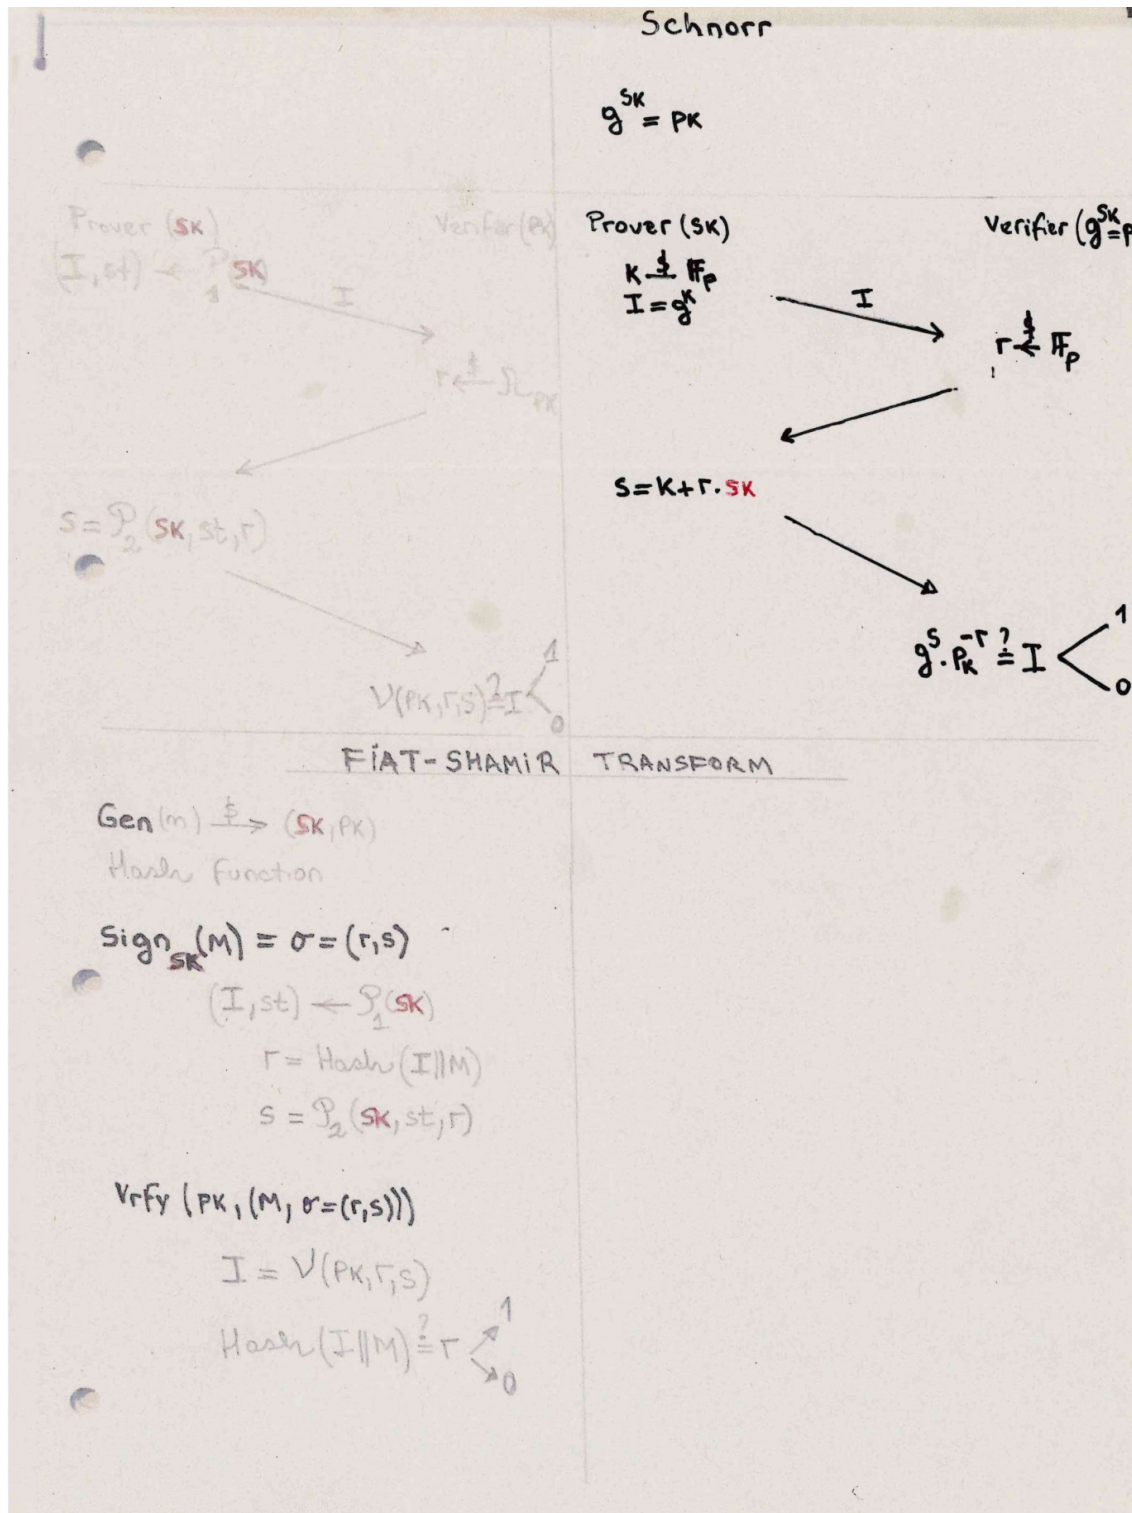 Schnorr
g^SK = PK
Prover (SK)
Verifer (PK)
(I, st) ← P_1(SK)
I
r ←$ Ω_PK
s = P_2(SK, st, r)
V(PK, r, s) ≟ I
1
0
Prover (SK)
Verifier (g^SK = P
K $— F_p
I = g^K
I
r ←$ F_p
s = K + r · SK
g^s · PK^-r ≟ I
1
0
FIAT-SHAMIR TRANSFORM
Gen(n) $→ (SK, PK)
Hash Function
Sign_SK(M) = σ = (r, s)
(I, st) ← P_1(SK)
r = Hash(I||M)
s = P_2(SK, st, r)
Vrfy (PK, (M, σ = (r, s)))
I = V(PK, r, s)
Hash(I||M) ≟ r
1
0